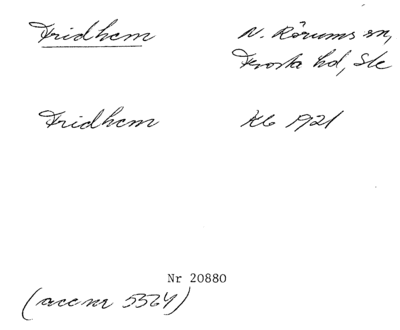 Fridhem N. Rörums sn,
Frosta hd, Sk
Fridhem Kb 1921
Nr 20880
(acc nr 5564)